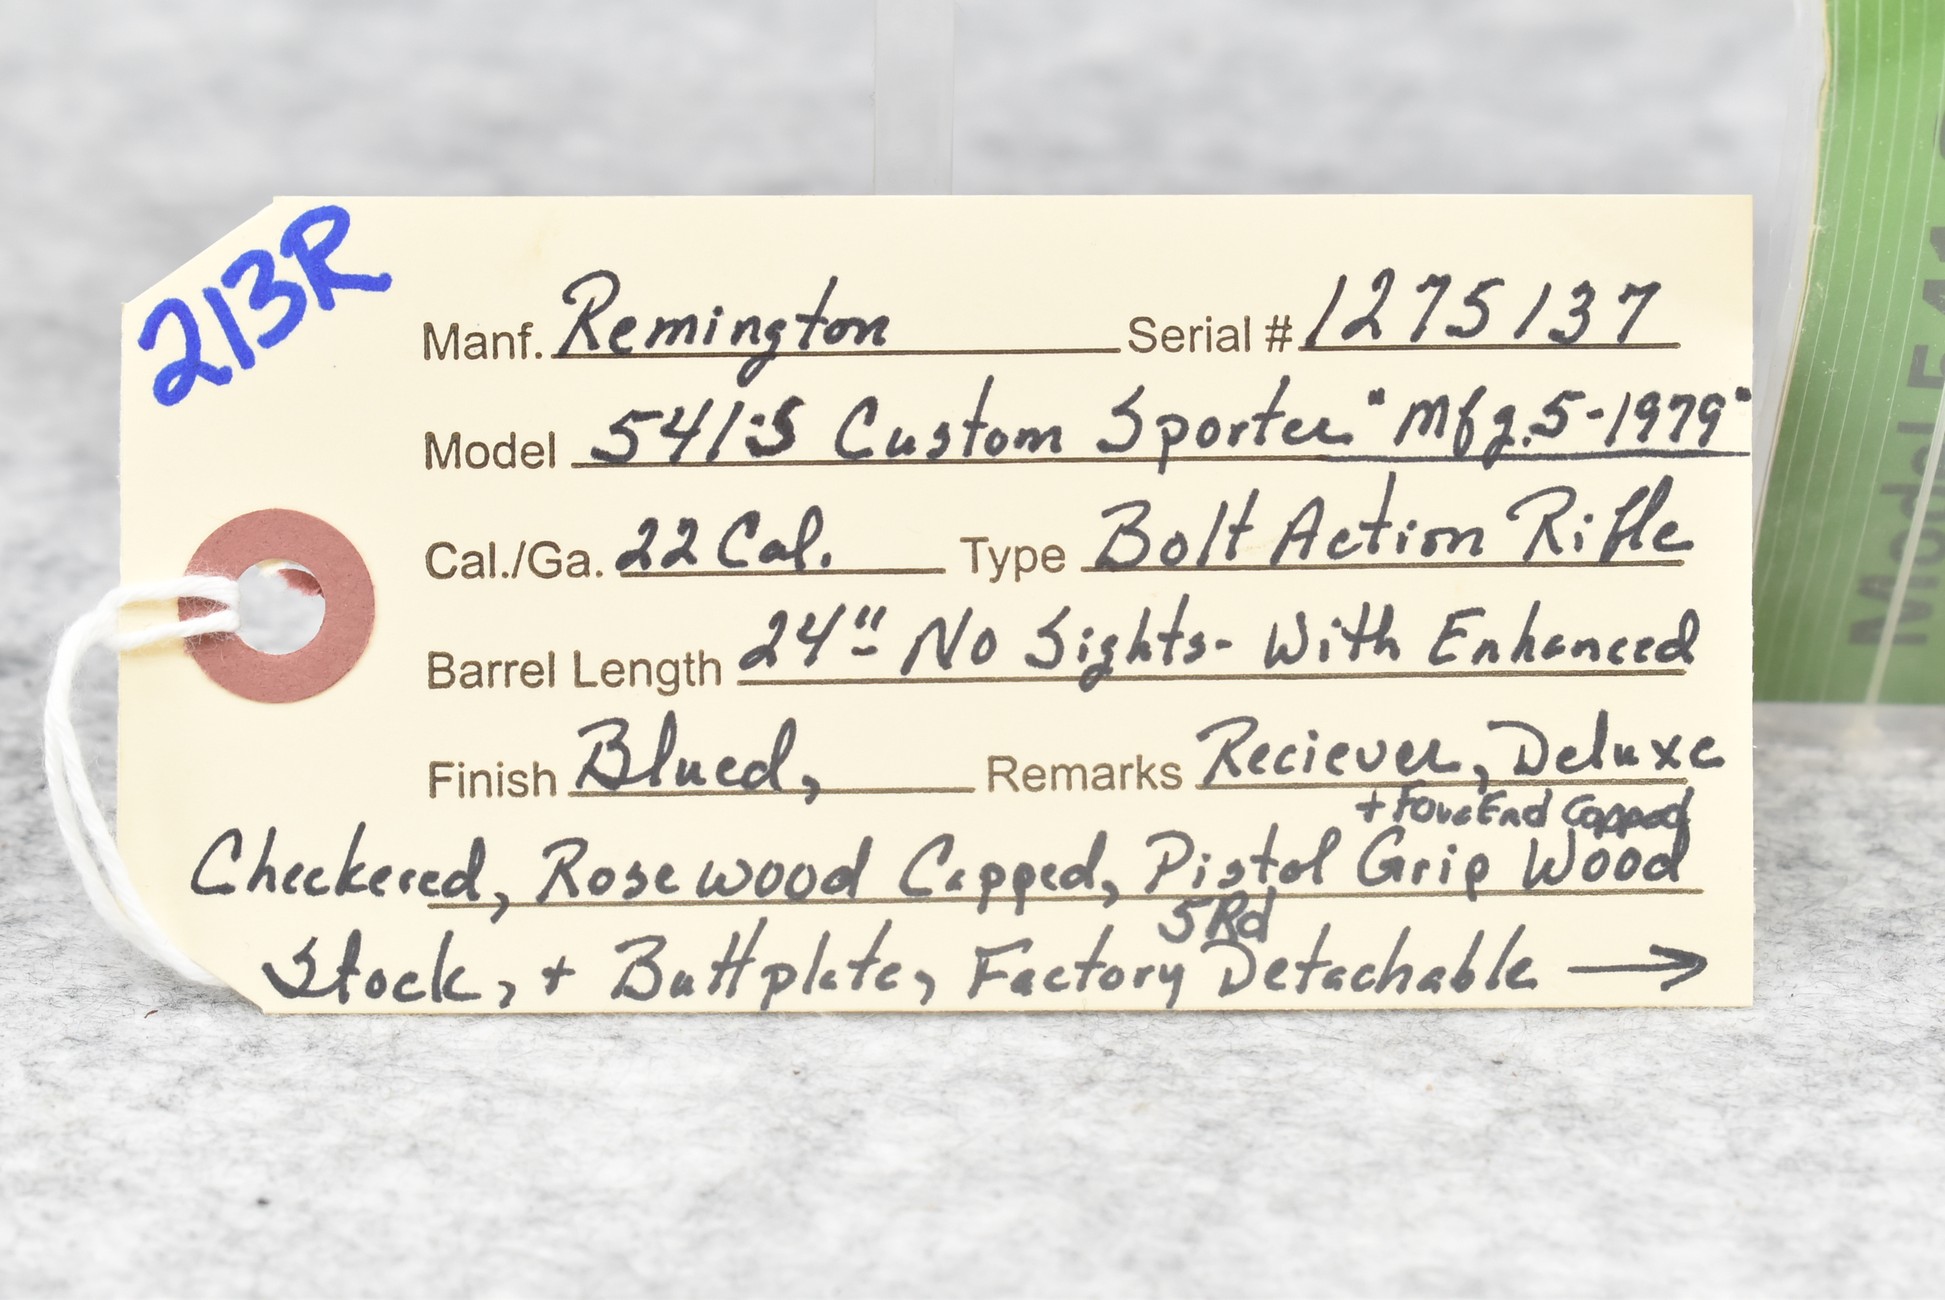 213R
Manf. Remington Serial # 1275137
Model 541-S Custom Sporter "Mfg. 5-1979"
Cal./Ga. 22 Cal. Type Bolt Action Rifle
Barrel Length 24" No Sights - With Enhanced
Finish Blued, Remarks Reciever, Deluxe
+ ForeEnd Capped
Checkered, Rosewood Capped, Pistol Grip Wood
5Rd
Stock, + Buttplate, Factory Detachable →
Model 541